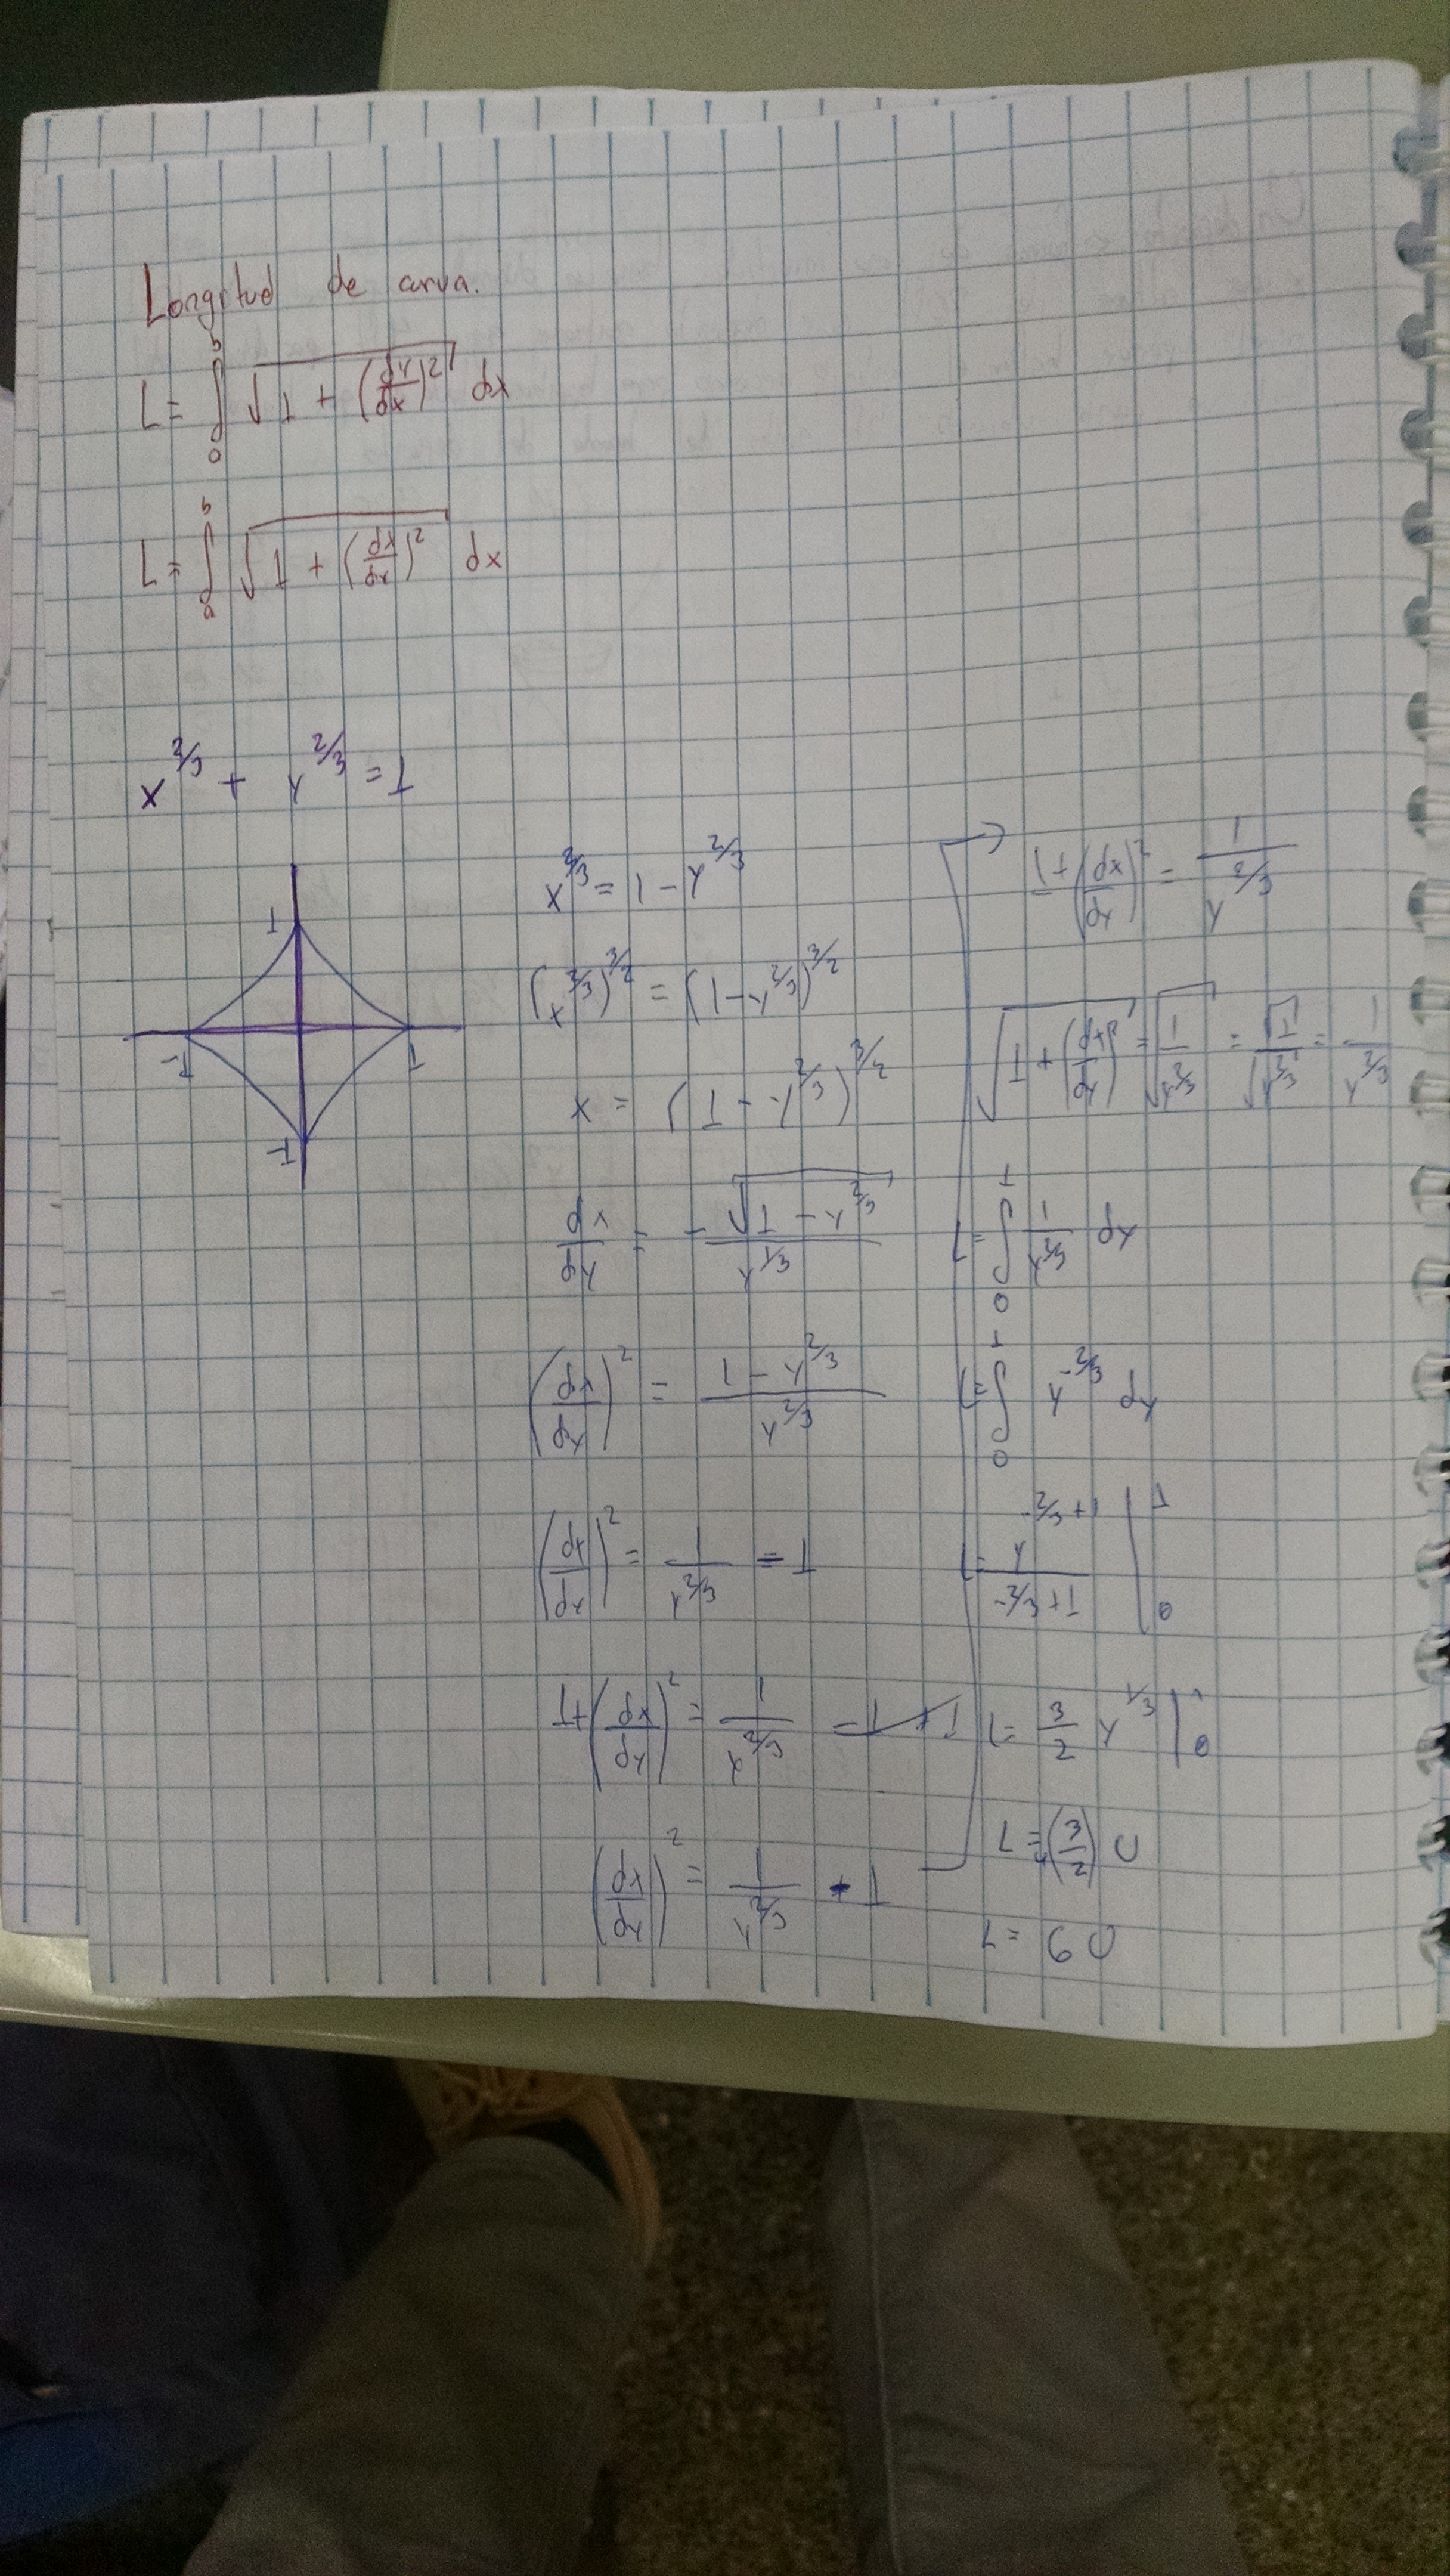 Longitud de curva.
L = ∫_a^b √(1 + (dy/dx)^2) dx
L = ∫_a^b √(1 + (dx/dy)^2) dx
x^2/3 + y^2/3 = 1
1
-1 1
-1
x^2/3 = 1 - y^2/3
(x^2/3)^3/2 = (1 - y^2/3)^3/2
x = (1 - y^2/3)^3/2
dx/dy = - √(1 - y^2/3) / y^1/3
(dx/dy)^2 = (1 - y^2/3) / y^2/3
(dx/dy)^2 = 1/y^2/3 - 1
1 + (dx/dy)^2 = 1/y^2/3 - 1 + 1
(dx/dy)^2 = 1/y^2/3 - 1
1 + (dx/dy)^2 = 1/y^2/3
√(1 + (dx/dy)^2) = √(1/y^2/3) = √1/√(y^2/3) = 1/y^2/3
L = ∫_0^1 1/y^2/3 dy
L = ∫_0^1 y^-2/3 dy
L = y^(-2/3 + 1) / (-2/3 + 1) |_0^1
L = 3/2 y^1/3 |_0^1
L = 4(3/2) U
L = 6 U